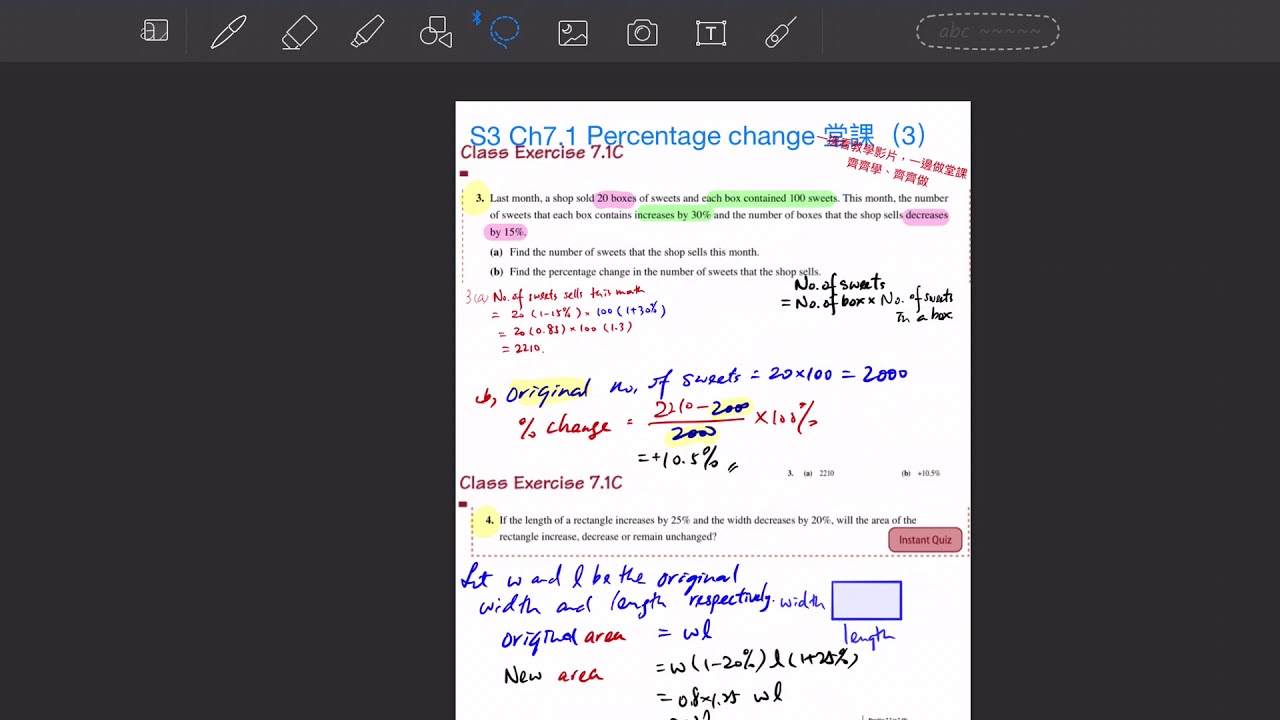 abc ~~~~~
T
S3 Ch7.1 Percentage change 堂課（3）
Class Exercise 7.1C
一邊看教學影片，一邊做堂課
齊齊學、齊齊做
3. Last month, a shop sold 20 boxes of sweets and each box contained 100 sweets. This month, the number
of sweets that each box contains increases by 30% and the number of boxes that the shop sells decreases
by 15%.
(a) Find the number of sweets that the shop sells this month.
(b) Find the percentage change in the number of sweets that the shop sells.
No. of sweets
= No. of box × No. of sweets
in a box
3(a) No. of sweets sells this month
= 20 (1-15%) × 100 (1+30%)
= 20 (0.85) × 100 (1.3)
= 2210.
b) original no. of sweets = 20×100 = 2000
% change = 2210-2000 ×100%
2000
=+10.5%
3. (a) 2210 (b) +10.5%
Class Exercise 7.1C
4. If the length of a rectangle increases by 25% and the width decreases by 20%, will the area of the
rectangle increase, decrease or remain unchanged?
Instant Quiz
Let w and l be the original
width and length respectively.
width
length
original area = wl
New area = w(1-20%) l(1+25%)
= 0.8×1.25 wl